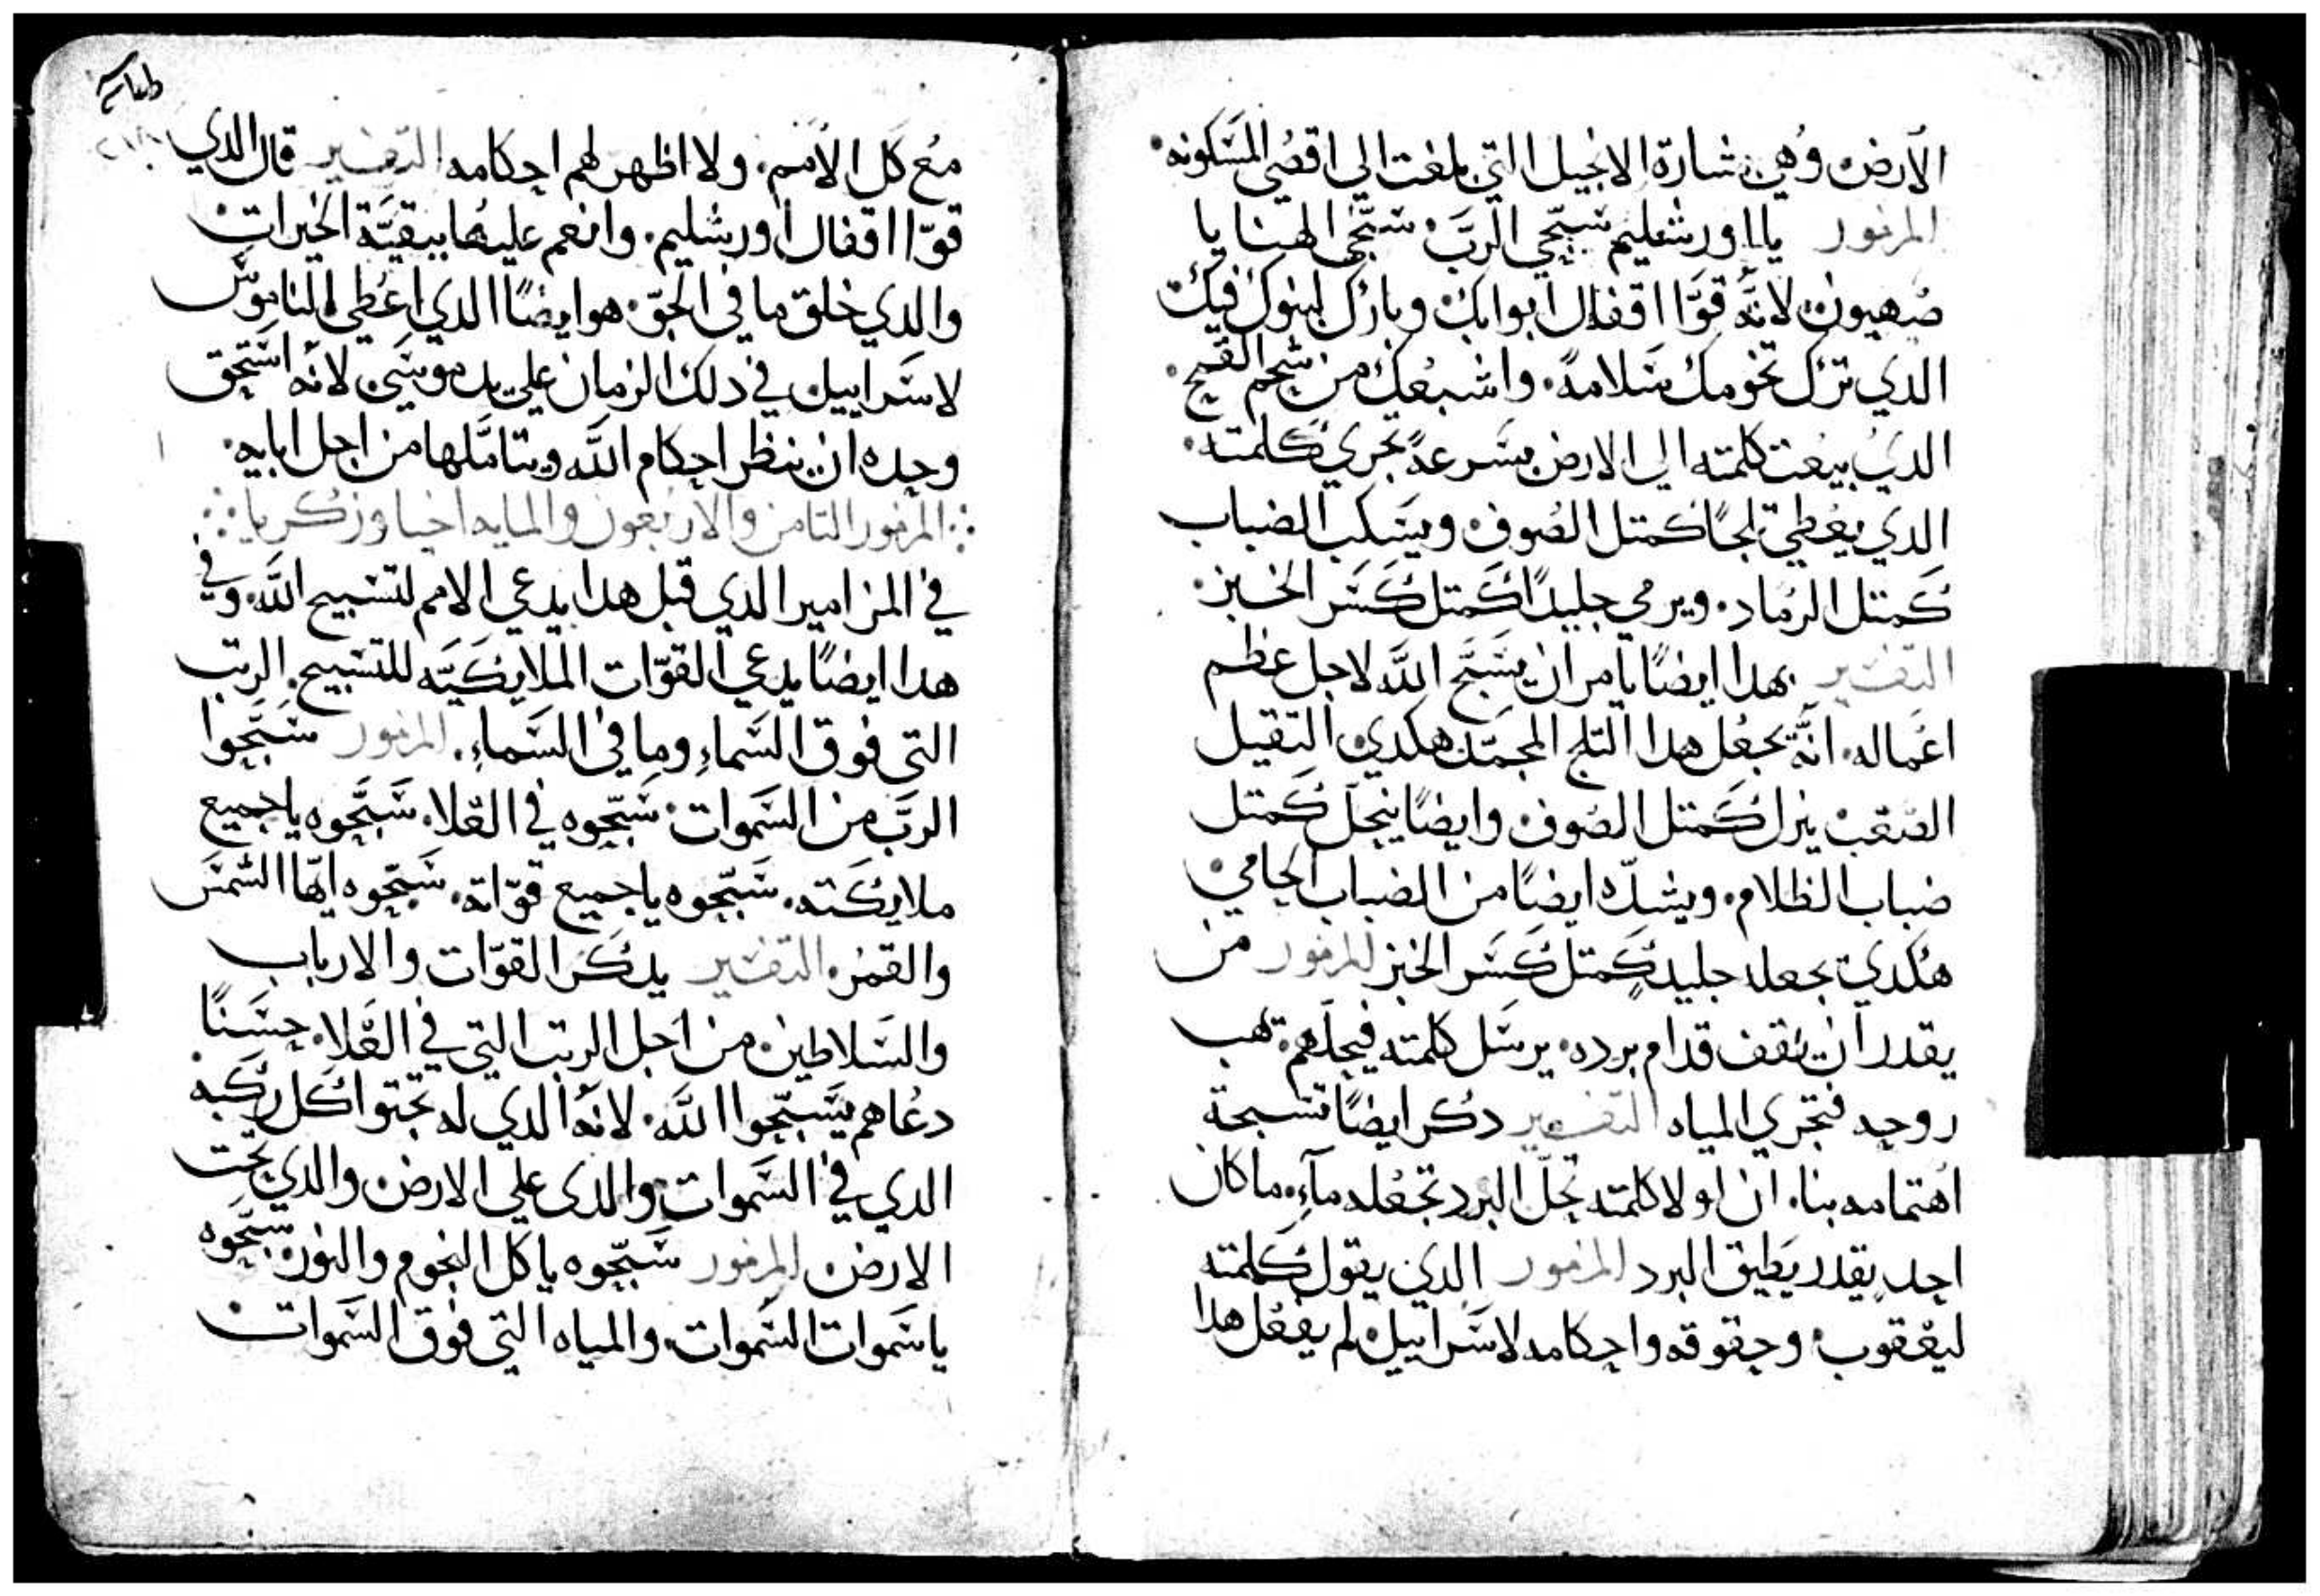 الارض وهي بشارة الانجيل التي بلغت الي اقصي المسكونه.
المزمور يا اورشليم سبّحي الربّ. سبّحي الهنا يا
صهيون. لانّه قوّا اقفال ابوابك وبارك بنوك فيك
الدي ترك تخومك سلامةً. واشبعك من شحم القمح.
الدي يبعت كلمته الي الارض بسرعةً تجري كلمته.
الدي يعطي تلجًا كمتل الصوف. ويسكب الضباب
كمتل الرماد. ويرمي جليدًا كمتل كسر الخبز.
التفسير بهدا ايضًا يامر ان يسبّح اللّه لاجل عظم
اعماله. انّه يجعل هدا التلج المجمّد هكدي التقيل
الصعب ينزل كمتل الصوف. وايضًا ينحلّ كمتل
ضباب الظلام. ويشدّه ايضًا من الضباب الحامي
هكدي يجعله جليد كمتل كسر الخبز المزمور من
يقدر ان يقف قدام برده. يرسل كلمته فيحلّهم. تهب
روحه فتجري المياه التفسير دكر ايضًا تسبحة
اهتمامه بنا. ان لولا كلمته تحلّ البرد تجعله مآءٍ. ما كان
احد يقدر يطيق البرد المزمور الدي يقول كلمته
ليعقوب. وحقوقه واحكامه لاسراييل. لم يفعل هدا
مع كل الامم. ولا اظهر لهم احكامه التفسير قال الدي
قوّا اقفال اورشليم. وانعم عليها ببقيّة الخيرات
والدي خلق ما في الجوّ. هو ايضًا الدي اعطي الناموس
لاسراييل في دلك الزمان علي يد موسي. لانّه استحق
وحده ان ينظر احكام اللّه ويتامّلها من اجل ابايه.
المزمور التامن والاربعون والمايه احيا وزكريا
في المزامير الدي قبل هدا يدعي الامم لتسبيح اللّه. وفي
هدا ايضًا يدعي القوّات الملايكيّه للتسبيح. الرتب
التي فوق السماءِ وما في السماءِ. المزمور سبّحوا
الربّ من السموات. سبّحوه في العُلا. سبّحوه يا جميع
ملايكته. سبّحوه يا جميع قوّاته. سبّحوه ايّها الشمس
والقمر. التفسير يدكر القوّات والارباب
والسلاطين. من اجل الرتب التي في العُلا. حسنًا
دعاهم يسبّحوا اللّه. لانّه الدي له تجتوا كل ركبه
الدي في السموات والدي علي الارض والدي تحت
الارض المزمور سبّحوه يا كل النجوم والنور. سبّحوه
يا سموات السموات. والمياه التي فوق السموات